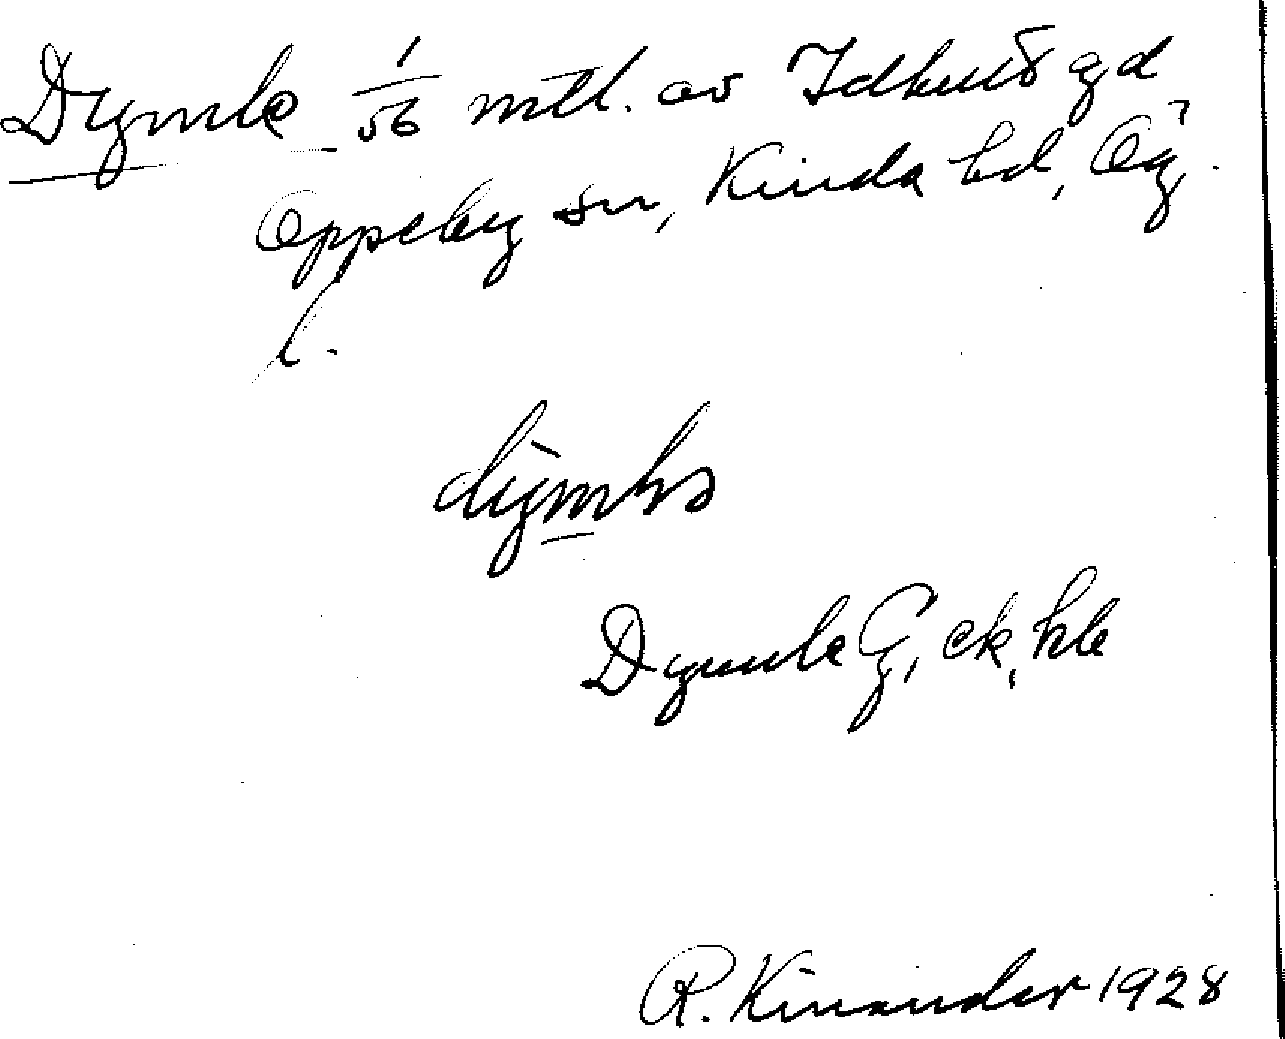 Dymle 1/56 mtl. av Idhult gd
Oppeby sn, Kinda hd, Ög.
l.
dỳmlə
Dymle G, ek, hle
R. Kinander 1928